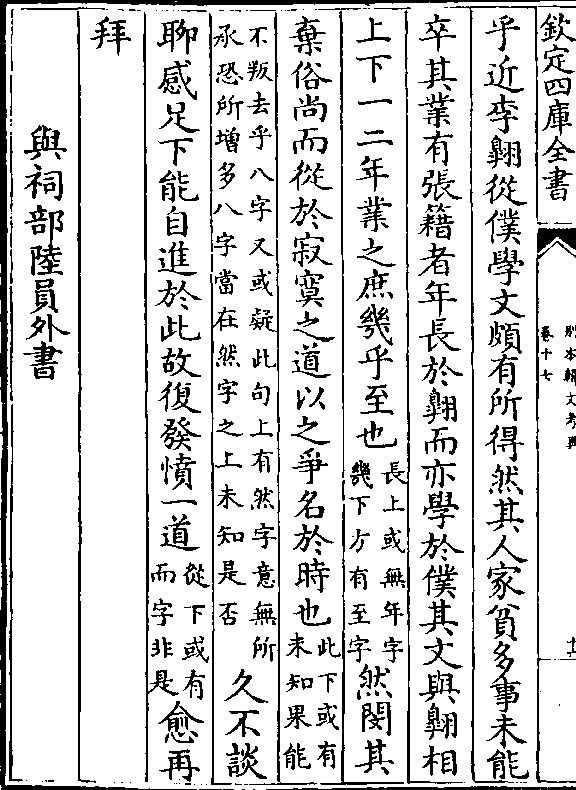 欽定四庫全書
別本韓文考異
卷十七
乎近李翺從僕學文頗有所得然其人家貧多事未能
卒其業有張籍者年長於翺而亦學於僕其文與翺相
上下一二年業之庶幾乎至也
長上或無年字
幾下方有至字
然閔其
棄俗尚而從於寂寞之道以之爭名於時也
此下或有
未知果能
不叛去乎八字又或疑此句上有然字意無所
承恐所增多八字當在然字之上未知是否
久不談
聊感足下能自進於此故復發憤一道
從下或有
而字非是
愈再
拜
與祠部陸員外書